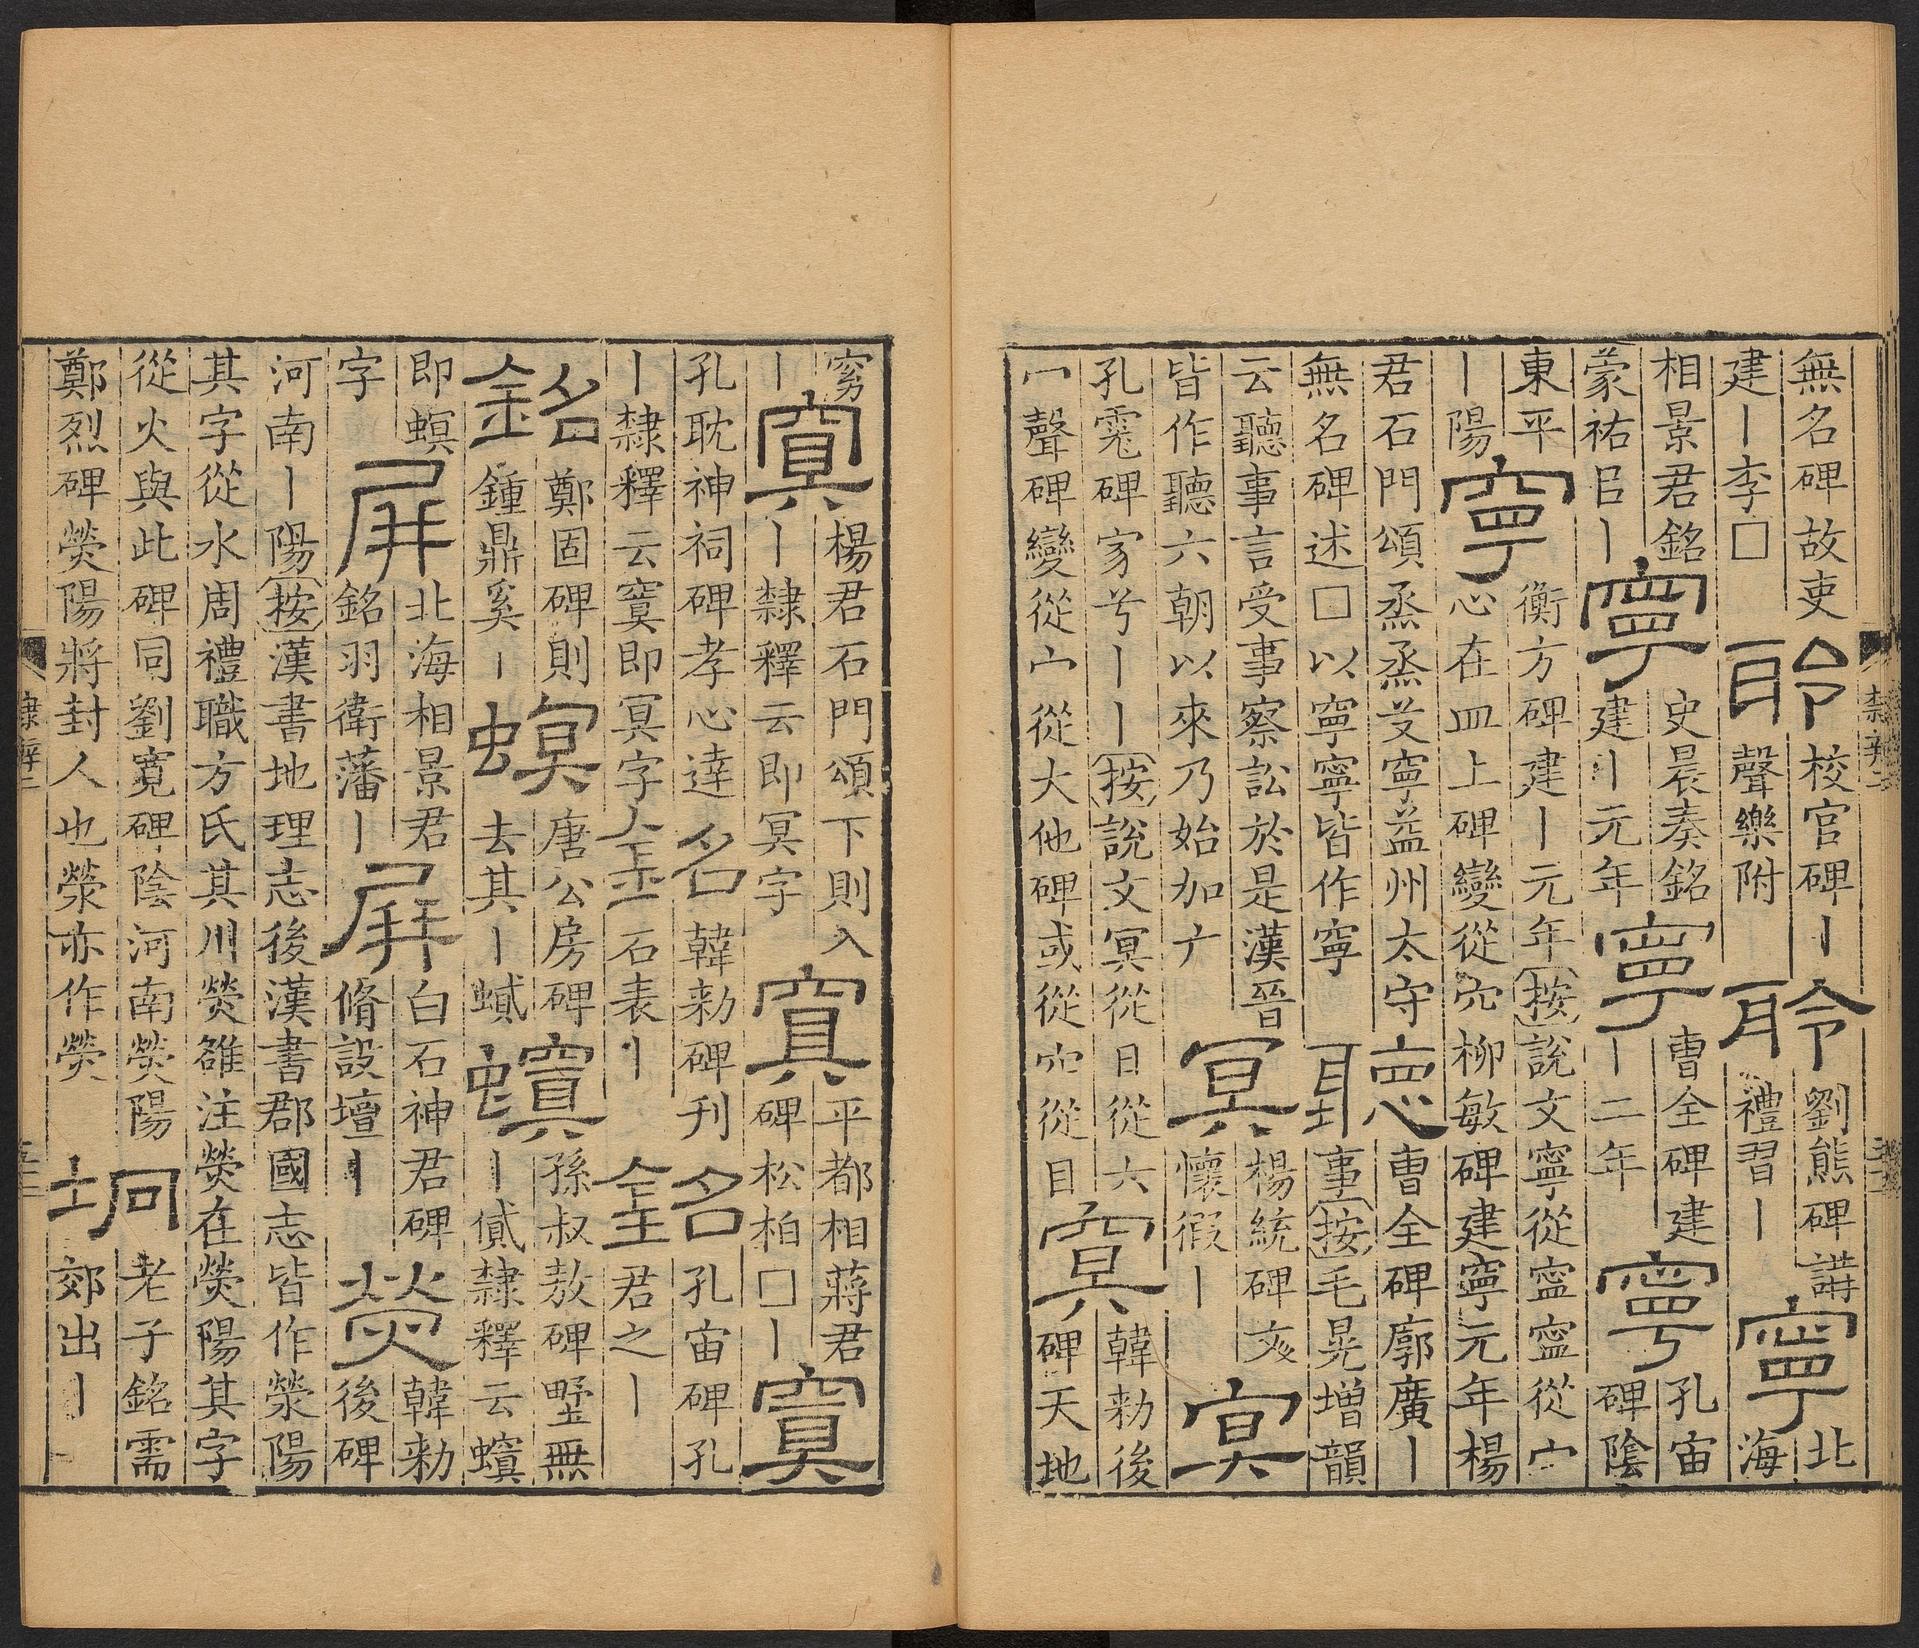 無名碑故吏建丨李□聆校官碑丨聲樂附聆劉熊碑講禮習丨寧北海
相景君銘蒙祐㠯丨寧史晨奏銘建丨元年寧曹全碑建丨二年寧孔宙碑陰
東平丨陽寧衡方碑建丨元年按說文寧從寍寍從宀心在皿上碑變從穴柳敏碑建寧元年楊
君石門頌烝烝艾寧益州太守無名碑述□以寧寧皆作寧聽曹全碑廓廣丨事按毛晃增韻
云聽事言受事察訟於是漢晉皆作聽六朝以來乃始加广冥楊統碑懷徦丨冥韓勑後
孔碑兮丨丨按說文冥從日從六冖聲碑變從宀從大他碑或從穴從目冥碑天地
窈丨冥楊君石門頌下則入丨隸釋云即冥字冥平都相蔣君碑松柏□丨冥
孔耽神祠碑孝心達丨隸釋云寞即冥字銘韓勑碑刊石表丨銘孔宙碑孔君之丨
銘鄭固碑則鍾鼎奚丨螟唐公房碑去其丨蟘螟孫叔敖碑壄無丨貣隸釋云螟
即螟字屏北海相景君銘羽衛藩丨屏白石神君碑脩設壇丨熒韓勑後碑
河南丨陽按漢書地理志後漢書郡國志皆作滎陽其字從水周禮職方氏其川熒雒注熒在熒陽其字
從火與此碑同劉寬碑陰河南熒陽鄭烈碑熒陽將封人也滎亦作熒坰老子銘需郊出丨
隸辨二